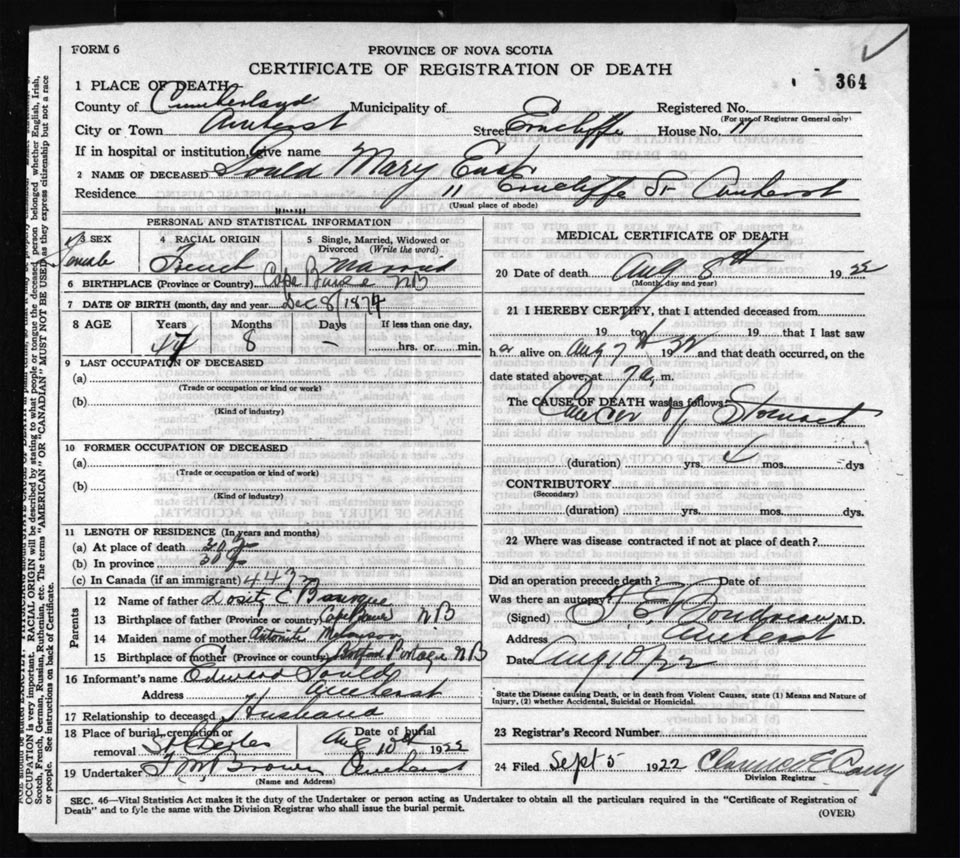 FORM 6
PROVINCE OF NOVA SCOTIA
CERTIFICATE OF REGISTRATION OF DEATH
364
1 PLACE OF DEATH
County of Cumberland Municipality of Registered No.
(For use of Registrar General only)
City or Town Amherst Street House No. 11
If in hospital or institution, give name
2 NAME OF DECEASED Mary
Residence 11 St Amherst
(Usual place of abode)
PERSONAL AND STATISTICAL INFORMATION
3 SEX Female
4 RACIAL ORIGIN French
5 Single, Married, Widowed or Divorced (Write the word) Married
6 BIRTHPLACE (Province or Country) Cape NB
7 DATE OF BIRTH (month, day and year) Dec 8/1874
8 AGE Years Months Days If less than one day,
47 8 — hrs. or min.
9 LAST OCCUPATION OF DECEASED
(a)
(Trade or occupation or kind or work)
(b)
(Kind of industry)
10 FORMER OCCUPATION OF DECEASED
(a)
(Trade or occupation or kind of work)
(b)
(Kind of industry)
11 LENGTH OF RESIDENCE (In years and months)
(a) At place of death
(b) In province
(c) In Canada (if an immigrant)
Parents
12 Name of father
13 Birthplace of father (Province or country) Cape NB
14 Maiden name of mother Melanson
15 Birthplace of mother (Province or country) Portage NB
16 Informant's name Edward
Address Amherst
17 Relationship to deceased Husband
18 Place of burial, cremation or removal St Charles
Date of burial Aug 10th 1922
19 Undertaker Brown Amherst
(Name and Address)
MEDICAL CERTIFICATE OF DEATH
20 Date of death Aug 8th 1922
(Month, day and year)
21 I HEREBY CERTIFY, that I attended deceased from
19 to 19 that I last saw
her alive on Aug 7th 1922 and that death occurred, on the
date stated above, at 7 a. m.
The CAUSE OF DEATH was as follows:
Cancer of Stomach
(duration) yrs. mos. dys
CONTRIBUTORY
(Secondary)
(duration) yrs. mos. dys.
22 Where was disease contracted if not at place of death?
Did an operation precede death? Date of
Was there an autopsy?
(Signed) M.D.
Address Amherst
Date Aug 10/22
*State the Disease causing Death, or in death from Violent Causes, state (1) Means and Nature of
Injury, (2) whether Accidental, Suicidal or Homicidal.
23 Registrar's Record Number
24 Filed Sept 5 1922 Clarence E
Division Registrar
SEC. 46—Vital Statistics Act makes it the duty of the Undertaker or person acting as Undertaker to obtain all the particulars required in the "Certificate of Registration of
Death" and to fyle the same with the Division Registrar who shall issue the burial permit.
(OVER)
OCCUPATION is very important. RACIAL ORIGIN will be described by stating to what people or tongue the deceased person belonged whether English, Irish,
Scotch, French, German, Russian, Ruthenian, etc. The terms "AMERICAN" OR "CANADIAN" MUST NOT BE USED as they express citizenship but not a race
or people. See instructions on back of Certificate.